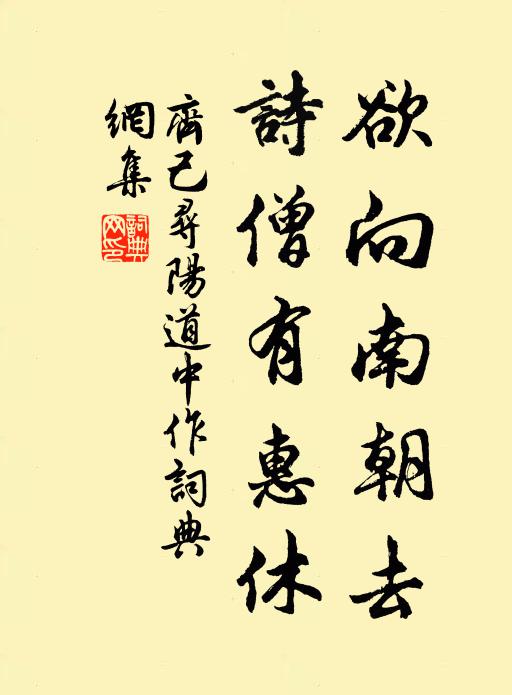 欲向南朝去
詩僧有惠休
齊己尋陽道中作詞典
網集
詞典
網印